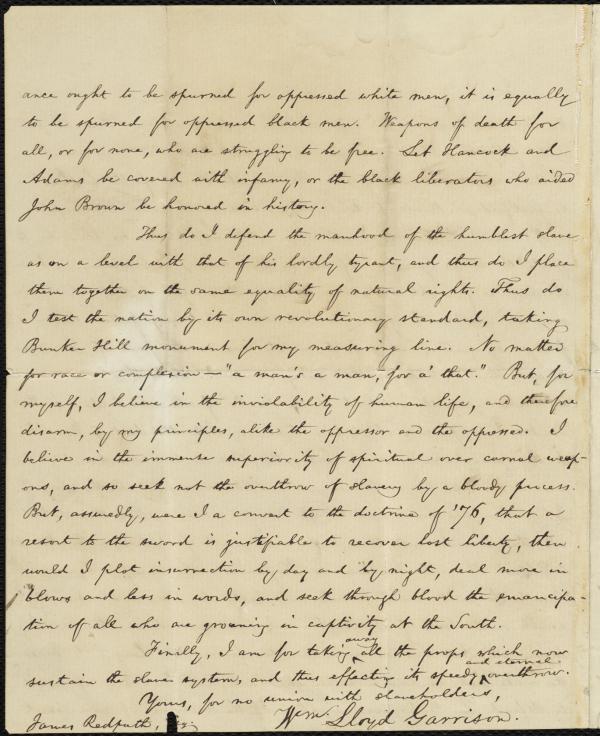 ance ought to be spurned for oppressed white men, it is equally
to be spurned for oppressed black men. Weapons of death for
all, or for none, who are struggling to be free. Let Hancock and
Adams be covered with infamy, or the black liberators who aided
John Brown be honored in history.
Thus do I defend the manhood of the humblest slave
as on a level with that of his lordly tyrant, and thus do I place
them together on the same equality of natural rights. Thus do
I test the nation by its own revolutionary standard, taking
Bunker Hill monument for my measuring line. No matter
for race or complexion — "a man's a man, for a' that." But, for
myself, I believe in the inviolability of human life, and therefore
disarm, by my principles, alike the oppressor and the oppressed. I
believe in the immense superiority of spiritual over carnal weap-
ons, and so seek not the overthrow of slavery by a bloody process.
But, assuredly, were I a convert to the doctrine of '76, that a
resort to the sword is justifiable to recover lost liberty, then
would I plot insurrection by day and by night, deal more in
blows and less in words, and seek through blood the emancipa-
tion of all who are groaning in captivity at the South.
Finally, I am for taking away all the props which now
sustain the slave system, and thus effecting its speedy and eternal overthrow.
Yours, for no union with slaveholders,
Wm. Lloyd Garrison.
James Redpath,